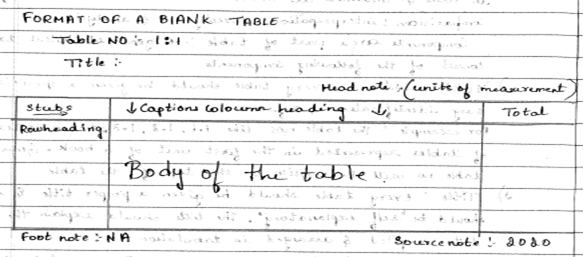 FORMAT OF A BIANK TABLE
Table NO :- 1:1
Title :-
Head note :- (units of measurement)
Stubs ↓ Captions coloumn heading ↓ Total
Rowheading
Body of the table.
Foot note :- NA Source note :- 2020